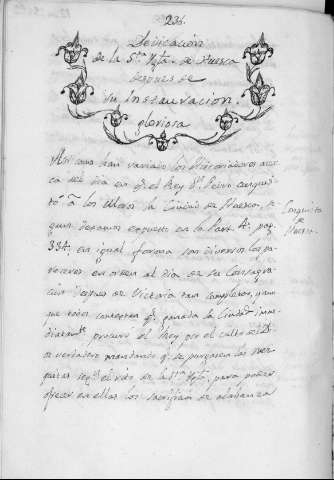 236.
Dedicación
de la S.ta Ygta. de Huesca
despues de
su Instauracion
gloriosa
Asi como han variado los Historiadores acerca
ca del dia en q.e el Rey D.n Pedro conquistó
tó a los Moros la Ciudad de Huesca, se
gun dexamos expuesto en la Part. 4.a pag.
334. en igual forma son diversos los pa
receres en orden al dia de su Consagra
cion despues de Victoria tan completa, y aun
que todos contestan q.e ganada la Ciudad inme
diatam.te procuró el Rey por el culto de Ds.
verdadero mandando q.e se purgasen las Mez
quitas seg.n el rito de la S.ta Ygta. para poder
ofrecer en ellas los sacrificios de alabanza
Conquista
de
Huesca